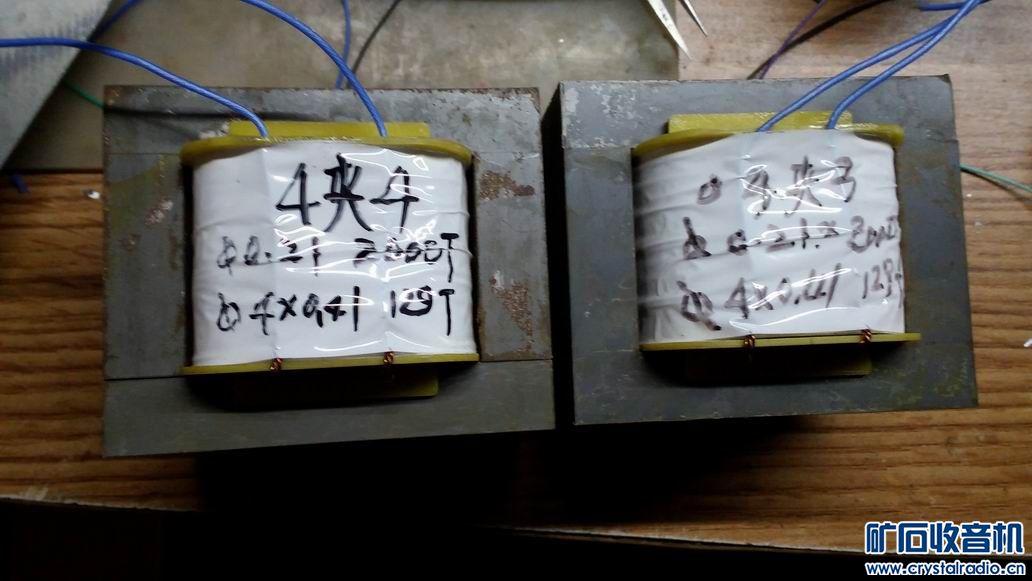 4夹4
φ0.21 2000T
φ4×0.41 129T
3夹3
φ0.21 2000T
φ4×0.41 129T
矿石收音机
www.crystalradio.cn